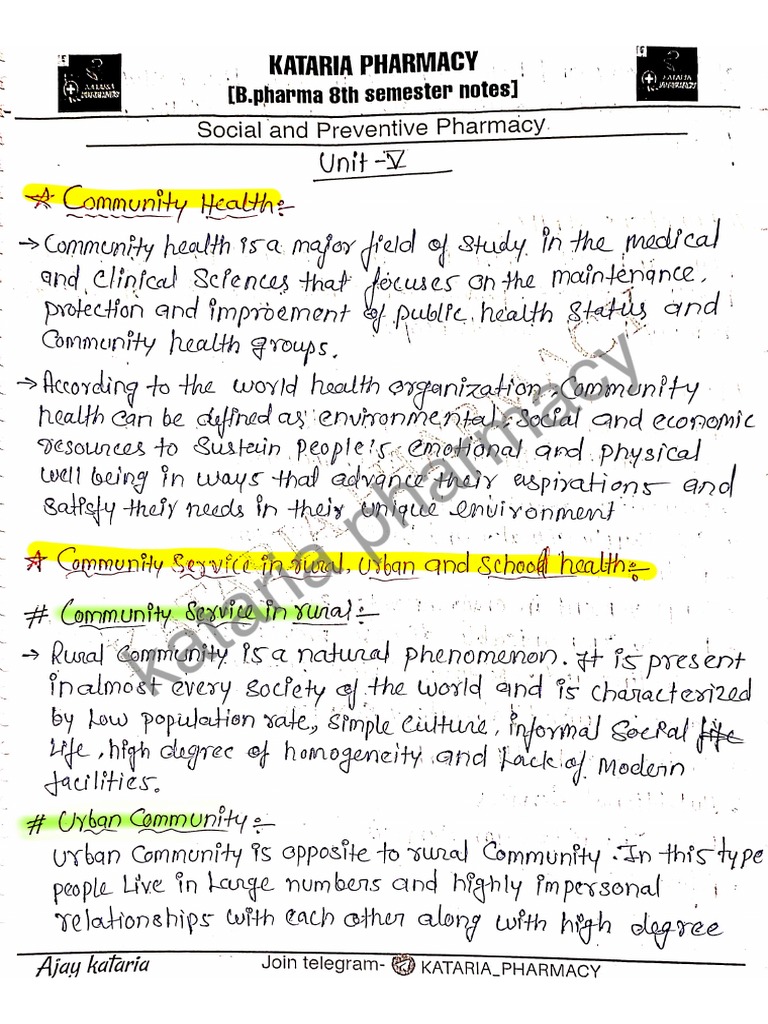 KATARIA PHARMACY
[B.pharma 8th semester notes]
Social and Preventive Pharmacy
Unit -V
☆ Community Health:-
→ Community health is a major field of study in the medical
and clinical sciences that focuses on the maintenance,
protection and improement of public health status and
Community health groups.
→ According to the world health organization, Community
health can be defined as environmental, social and economic
resources to sustain people's emotional and physical
well being in ways that advance their aspirations and
satisfy their needs in their unique environment
☆ Community Service in rural, urban and school health:-
# Community Service in rural:-
→ Rural Community is a natural phenomenon. It is present
in almost every society of the world and is characterized
by low population rate, simple culture, informal social life
life, high degree of homogeneity and lack of modern
facilities.
# Urban Community:-
urban Community is opposite to rural Community. In this type
people live in large numbers and highly impersonal
relationships with each other along with high degree
kataria pharmacy
Ajay kataria
Join telegram- KATARIA_PHARMACY